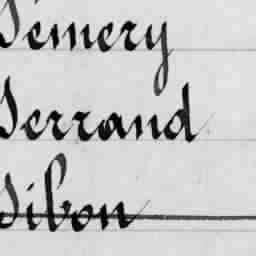 Semery
Serrand
Sibon